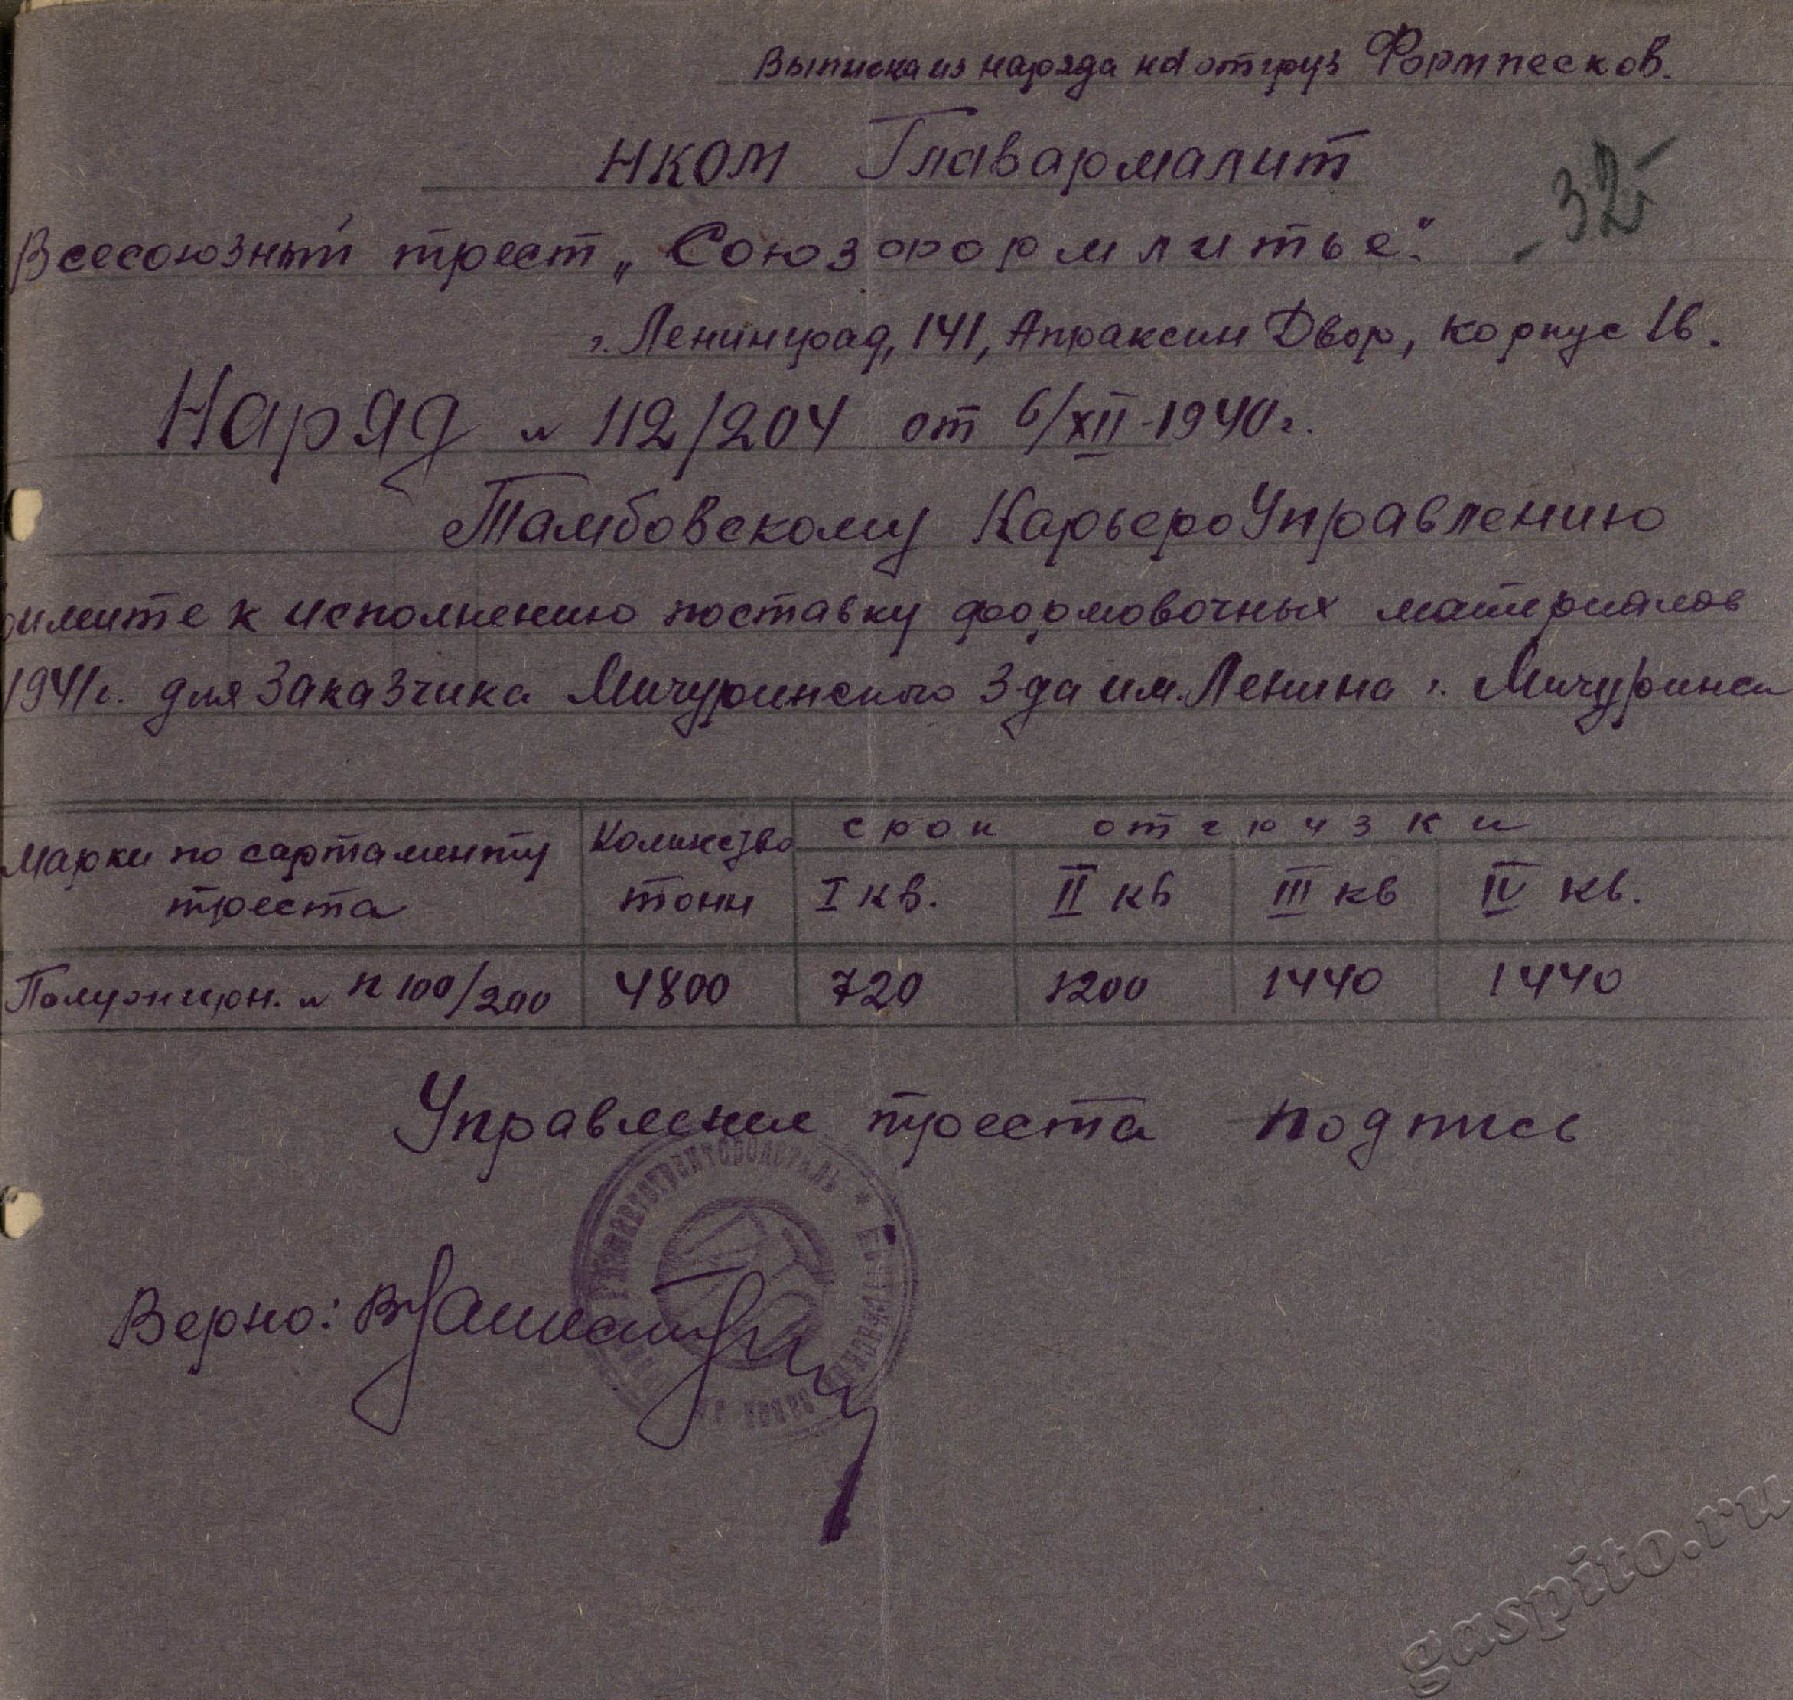 Выписка из наряда на отгруз Формпесков.
НКОМ Главармалит
32
Всесоюзный трест „Союзформлитье".
г. Ленинград, 141, Апраксин Двор, корпус 1в.
Наряд № 112/204 от 6/XII-1940г.
Тамбовскому КарьероУправлению
римите к исполнению поставку формовочных материалов
1941г. для Заказчика Мичуринского З-да им. Ленина г. Мичуринск
Марки по сартаменту треста
Количество тонн
срок отгрузки
I кв.
II кв
III кв
IV кв.
Полужирн. № П 100/200
4800
720
1200
1440
1440
Управление треста подпись
Верно:
gaspito.ru